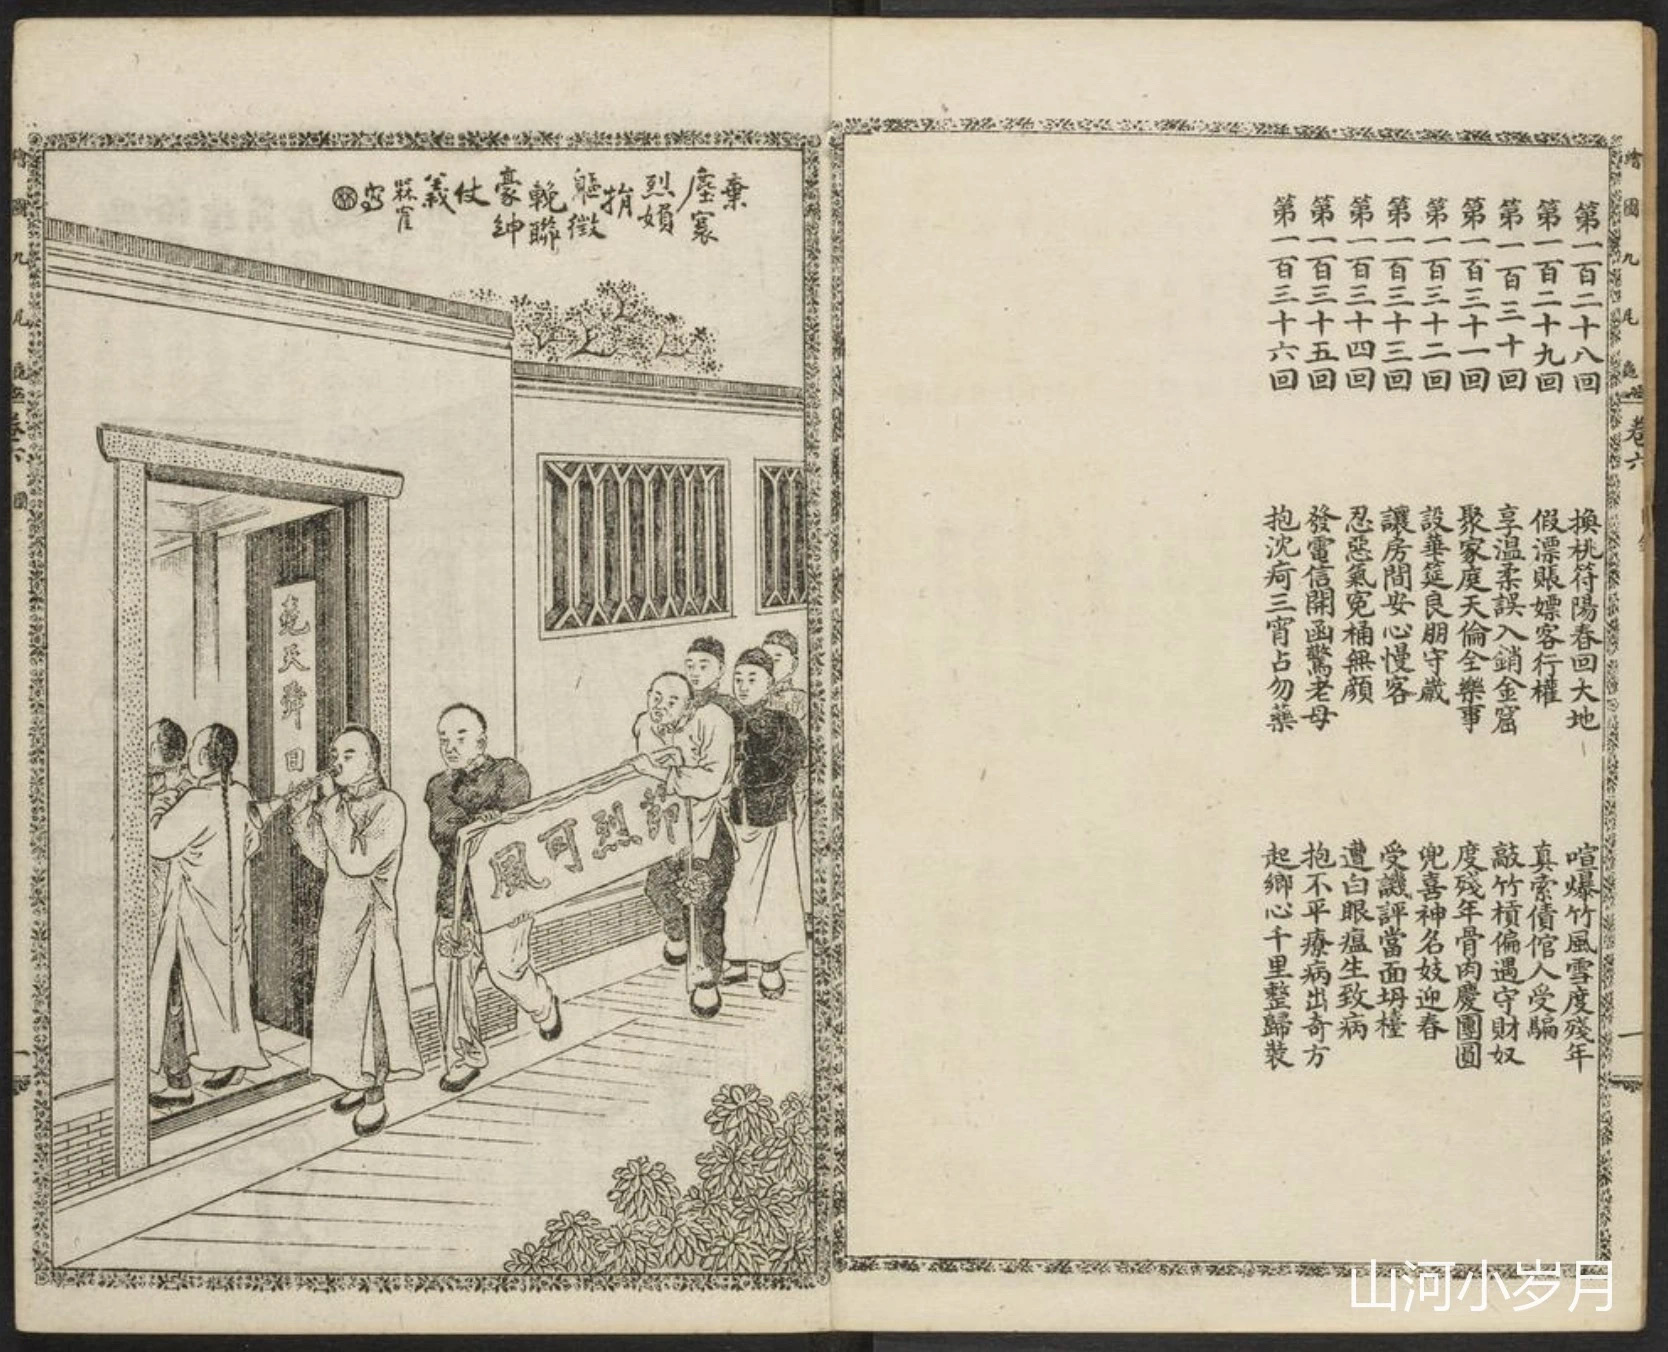 第一百二十八回　換桃符陽春回大地　喧爆竹風雪度殘年
第一百二十九回　假漂賬嫖客行權　真索債倌人受騙
第一百三十回　享溫柔誤入銷金窟　敲竹槓偏遇守財奴
第一百三十一回　聚家庭天倫全樂事　度殘年骨肉慶團圓
第一百三十二回　設華筵良朋守歲　兜喜神名妓迎春
第一百三十三回　讓房間安心慢客　受譏評當面坍檯
第一百三十四回　忍惡氣冤桶無顏　遭白眼瘟生致病
第一百三十五回　發電信開函驚老母　抱不平療病出奇方
第一百三十六回　抱沈疴三宵占勿藥　起鄉心千里整歸裝
繪圖九尾龜
卷六
棄
塵寰
烈婦
捐
軀徵
輓聯
豪紳
仗
義
節烈可風
堯天舜日
繪圖九尾龜
卷六
圖
一
山河小岁月